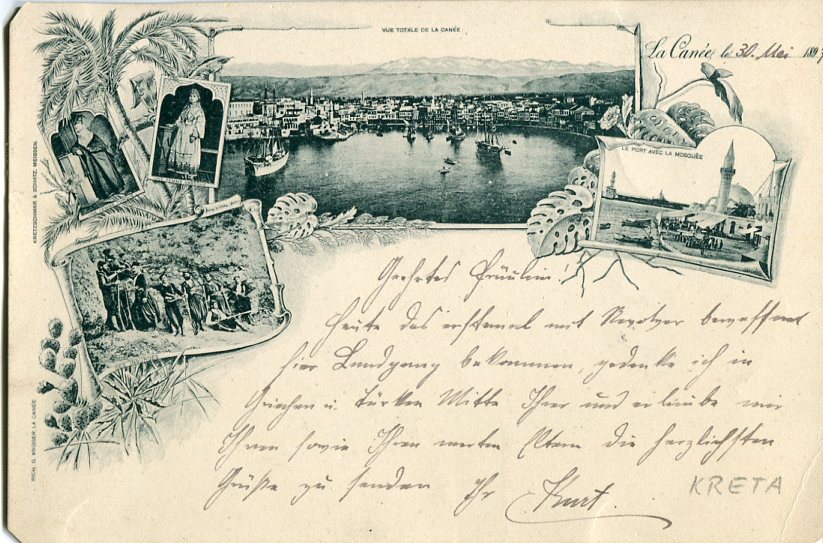 VUE TOTALE DE LA CANÉE
La Canée, le 30. Mai 189
LE PORT AVEC LA MOSQUÉE
KRETZSCHMAR & SCHATZ. MEISSEN.
RICH. G. KRÜGER, LA CANÉE
Geehrtes Fräulein!
Heute das erstemal mit bewaffnet
hier Landgang bekommen, gedenke ich in
Griechen u. Türken Mitte Ihrer und erlaube mir
Ihnen sowie Ihren werten Eltern die herzlichsten
Grüße zu senden Ihr Kurt.
KRETA